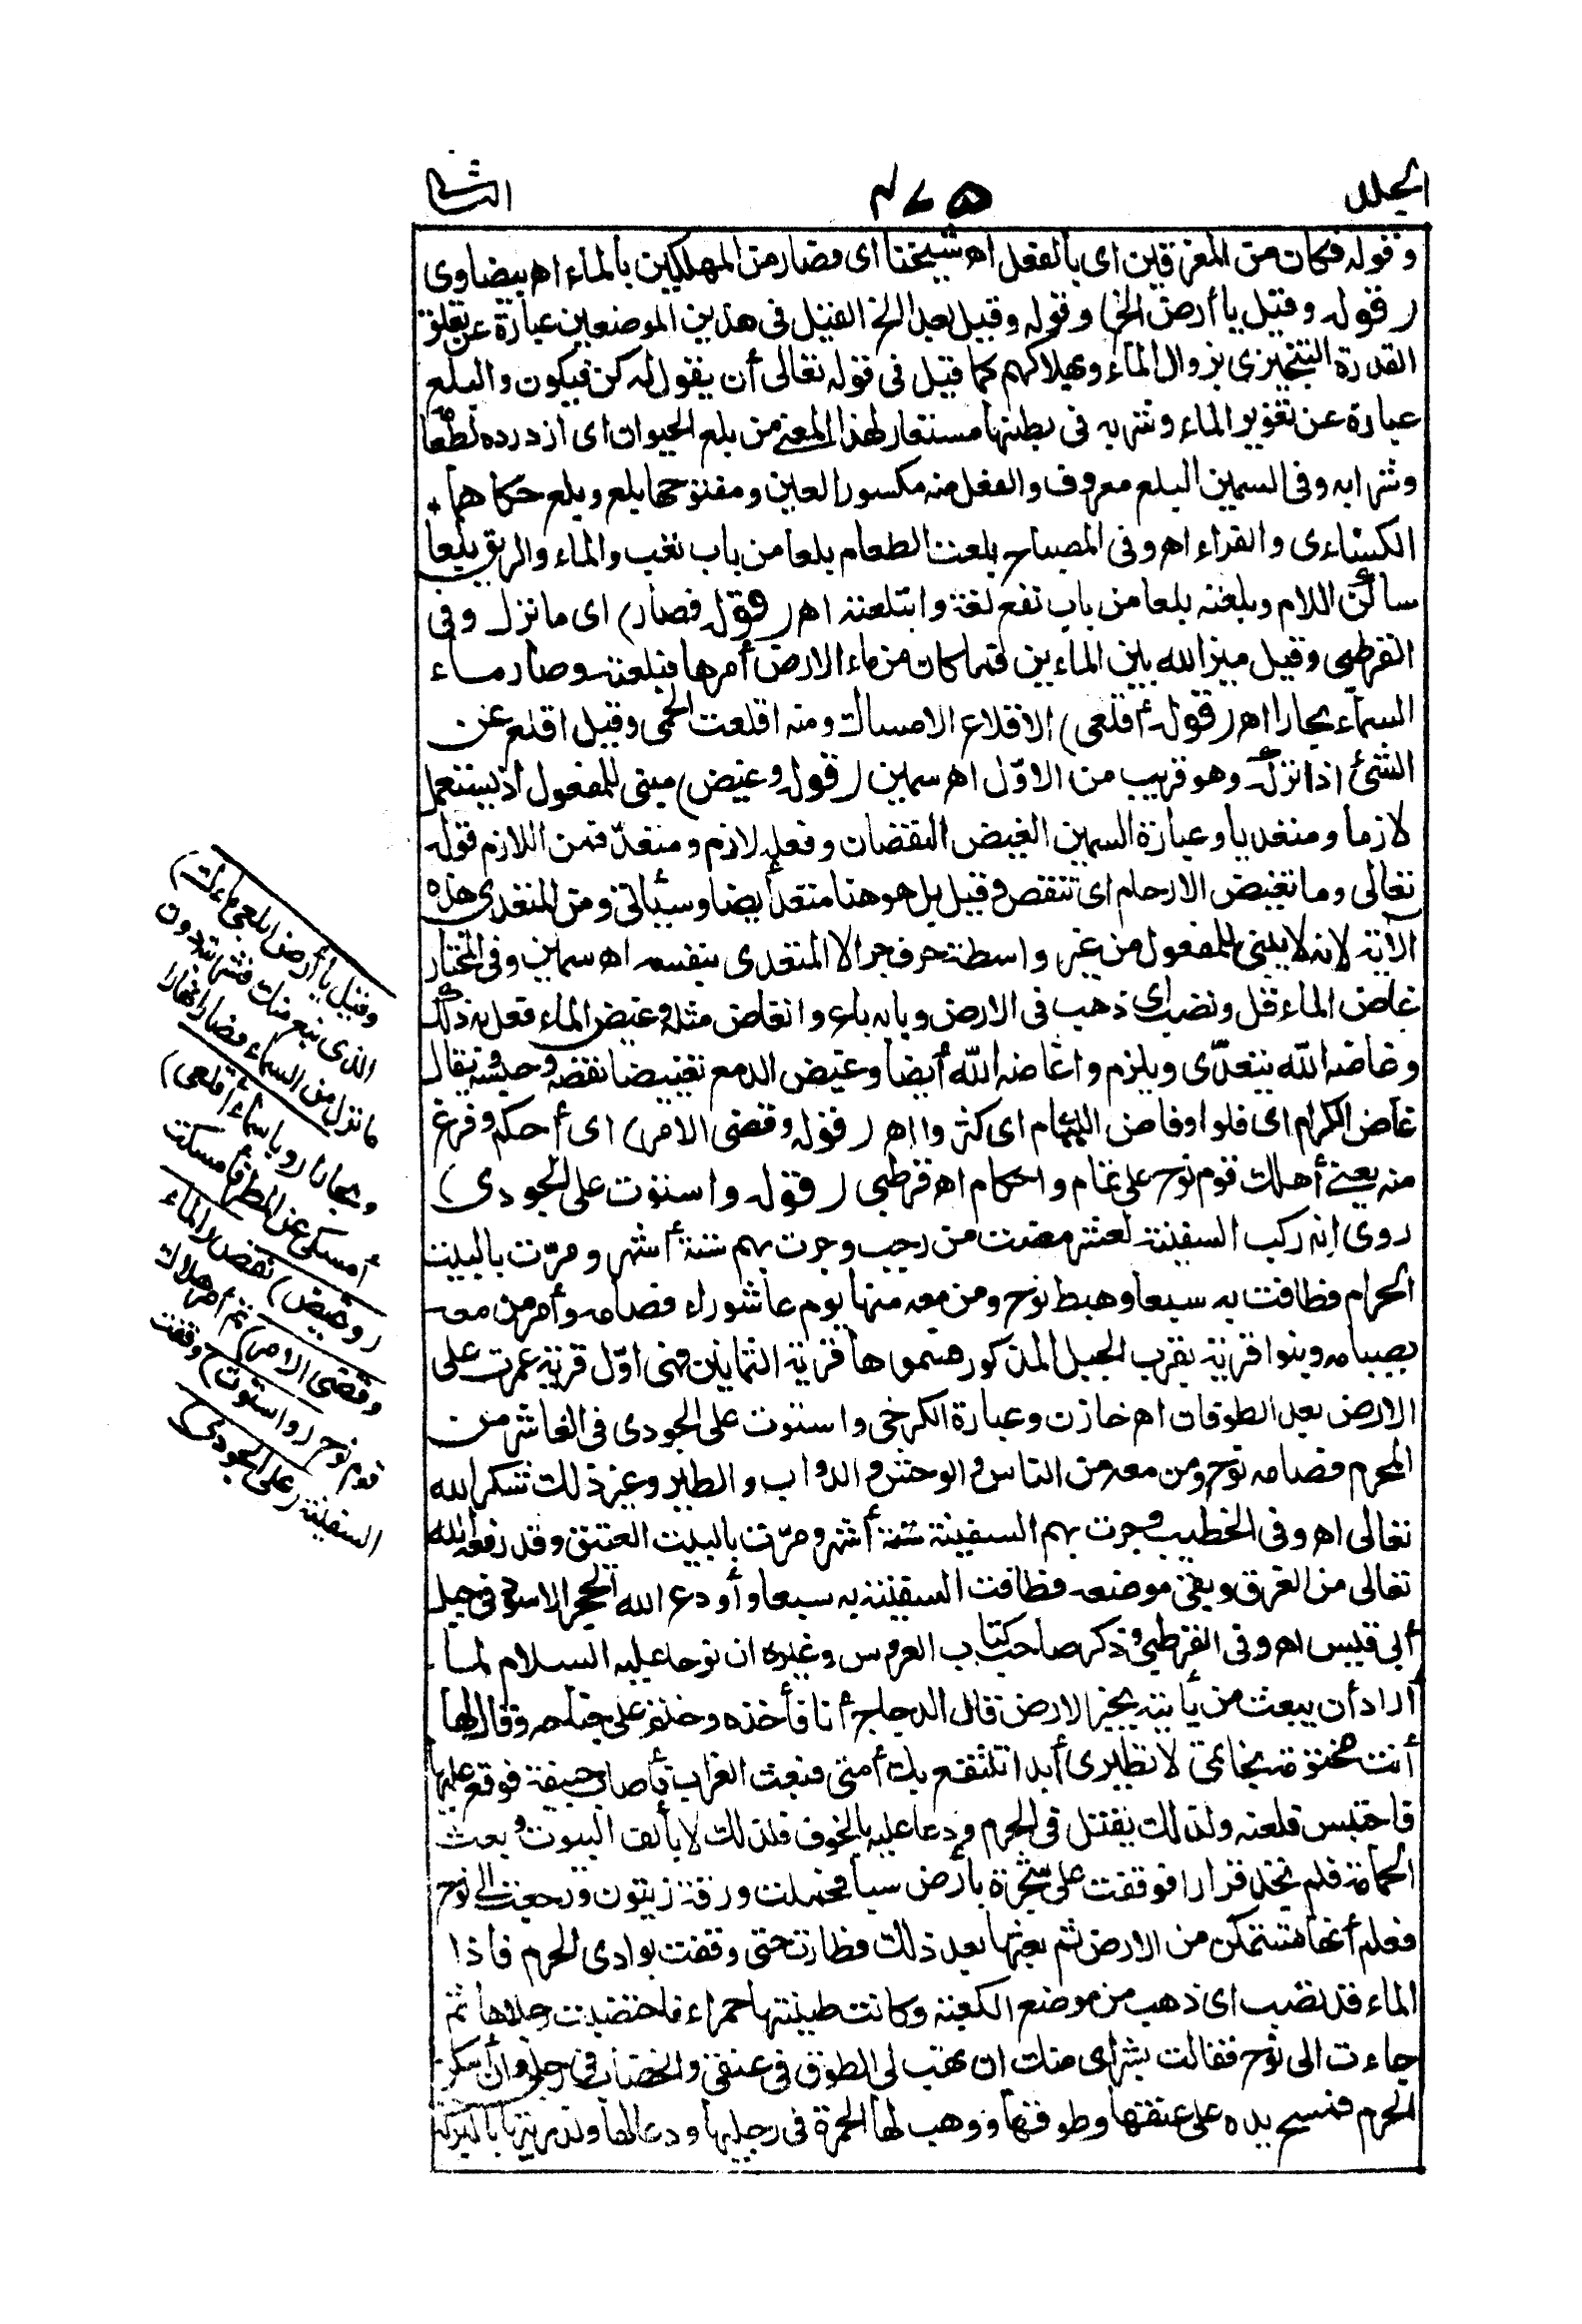 الجلد
٤٧٥
الثانى
وقوله فكان من المغرقين اى بالفعل اه شيخنا اى وصار من المهلكين بالماء اه بيضاوى
(قوله وقيل يا أرض الخ) وقوله وقيل بعدا الخ القيل فى هذين الموضعين عبارة عن تعلق
القدرة التنجيزى بزوال الماء وبهلاكهم كما قيل فى قوله تعالى أن يقول له كن فيكون والبلع
عبارة عن تغوير الماء وشربه فى بطنها مستعار لهذا المعنى من بلع الحيوان اى ازدرده لطعا
وشرابه وفى السمين البلع معروف والفعل منه مكسور العين ومفتوحها بلع وبلع حكاهما
الكسائى والفراء اه وفى المصباح بلعت الطعام بلعا من باب تعب والماء والريق بلعا
ساكن اللام وبلعته بلعا من باب نفع لغة وابتلعته اه (قوله فصار) اى ما نزل وفى
القرطبى وقيل ميز الله بين الماءين فما كان من ماء الارض أمرها فبلعته وصار ماء
السماء بحارا اه (قوله أقلعى) الاقلاع الامساك ومنه اقلعت الحمى وقيل اقلع عن
الشئ اذا تركه وهو قريب من الاوّل اه سمين (قوله وغيض) مبنى للمفعول اذ يستعمل
لازما ومتعديا وعبارة السمين الغيض النقصان وفعله لازم ومتعدّ فمن اللازم قوله
تعالى وما تغيض الارحام اى تنقص وقيل بل هو هنا متعد أيضا وسيأتى ومن المتعدى هذه
الآية لانه لا يبنى للمفعول من غير واسطة حرف جر الا المتعدى بنفسه اه سمين وفى المختار
غاض الماء قل ونضب اى ذهب فى الارض وبابه باع وانغاض مثله وغيض الماء فعل به ذلك
وغاضه الله يتعدّى ويلزم واغاضه الله أيضا وغيض الدمع تغييضا نقصه وحبسه يقال
غاض الكرام اى قلوا وفاض اللئام اى كثروا اه (قوله وقضى الامر) اى أحكم وفرغ
منه يعنى أهلك قوم نوح على تمام واحكام اه قرطبى (قوله واستوت على الجودى)
روى انه ركب السفينة لعشر مضت من رجب وجرت بهم ستة أشهر ومرّت بالبيت
الحرام فطافت به سبعا وهبط نوح ومن معه منها يوم عاشوراء فصامه وأمر من معه
بصيامه وبنوا قرية بقرب الجبل المذكور فسموها قرية الثمانين فهى اوّل قرية عمرت على
الارض بعد الطوفان اه خازن وعبارة الكرخى واستوت على الجودى فى العاشر من
المحرم فصامه نوح ومن معه من الناس والوحش والدواب والطير وغير ذلك شكرا لله
تعالى اه وفى الخطيب وجرت بهم السفينة ستة أشهر ومرّت بالبيت العتيق وقد رفعه الله
تعالى من الغرق وبقى موضعه فطافت السفينة به سبعا وأودع الله الحجر الاسود فى جبل
أبى قبيس اه وفى القرطبى وذكر صاحب كتاب العروس وغيره ان نوحا عليه السلام لما
أراد أن يبعث من يأتيه بخبر الارض قال الدجاج أنا فأخذه وختم على جناحه وقال لها
أنت مختومة بخاتمى لا تطيرى أبدا تنتفع بك أمتى فبعث الغراب فأصاب جيفة فوقع عليها
فاحتبس فلعنه ولذلك يقتل فى الحرم ودعا عليه بالخوف فلذلك لا يألف البيوت وبعث
الحمامة فلم تجد قرارا فوقفت على شجرة بأرض سبا فحملت ورقة زيتون ورجعت الى نوح
فعلم أنها لم تستمكن من الارض ثم بعثها بعد ذلك فطارت حتى وقفت بوادى الحرم فاذا
الماء قد نضب اى ذهب من موضع الكعبة وكانت طينتها حمراء فاختضبت رجلاها ثم
جاءت الى نوح فقالت بشراى منك ان تهب لى الطوق فى عنقى والخضاب فى رجلى وان أسكن
الحرم فمسح يده على عنقها وطوقها ووهب لها الحمرة فى رجليها ودعا لها ولذريتها بالبركة
وقيل يا أرض ابلعى ماءك)
الذى نبع منك فشربته دون
ما نزل من السماء فصار انهارا
وبحارا (ويا سماء أقلعى)
أمسكى عن المطر فأمسكت
(وغيض) نقص (الماء
وقضى الامر) تم أمر هلاك
قوم نوح (واستوت) وقفت
السفينة (على الجودى)